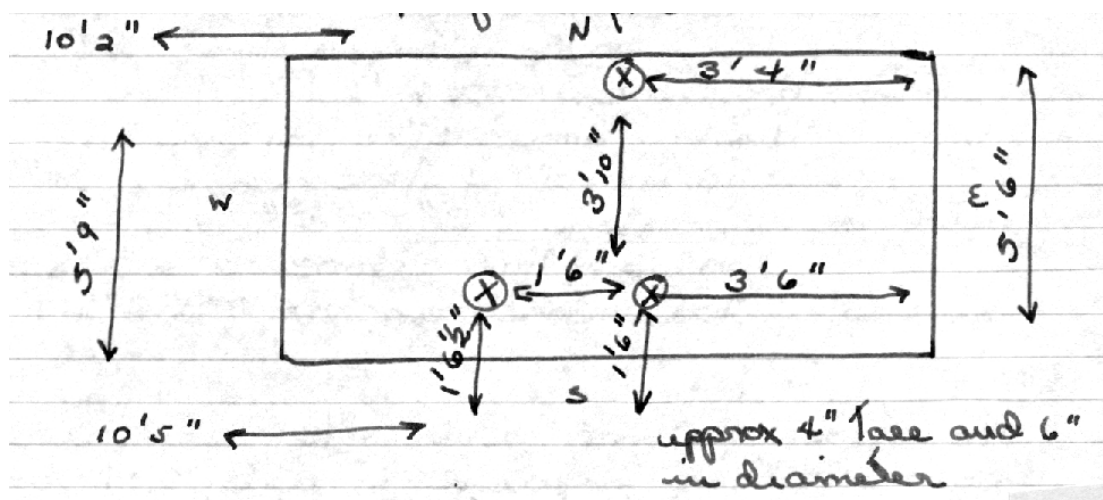 10'2"
N
3'4"
W
5'9"
3'10"
E
5'6"
1'6"
3'6"
1'6½"
1'6"
S
10'5"
approx 4" Tall and 6"
in diameter